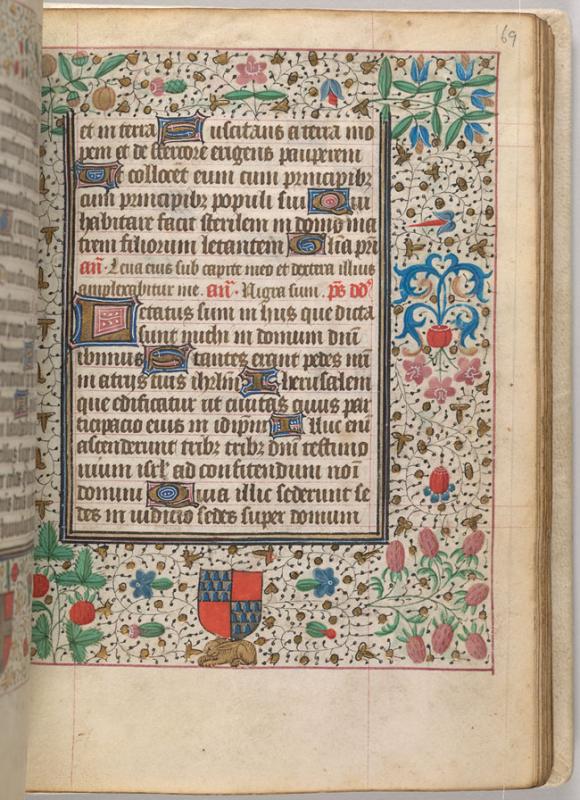 69
et in terra Suscitans a terra ino
pem et de stercore erigens pauperem
Ut collocet eum cum principibꝫ
cum principibꝫ populi sui Qui
habitare facit sterilem in domo ma
trem filiorum letantem Glīa pri
an̄. Leua eius sub capite meo et dextera illius
amplexabitur me. an̄. Nigra sum. p̄s dd̄
Letatus sum in hiis que dicta
sunt michi in domum dnī
ibimus Stantes erant pedes nrī
in atriis tuis ihrlm̄ Iherusalem
que edificatur ut ciuitas cuius par
ticipacio eius in idip̄m Illuc eni
ascenderunt tribꝫ tribꝫ dnī testimo
nium isrl̄ ad confitendum noī
domini Quia illic sederunt se
des in iudicio sedes super domum